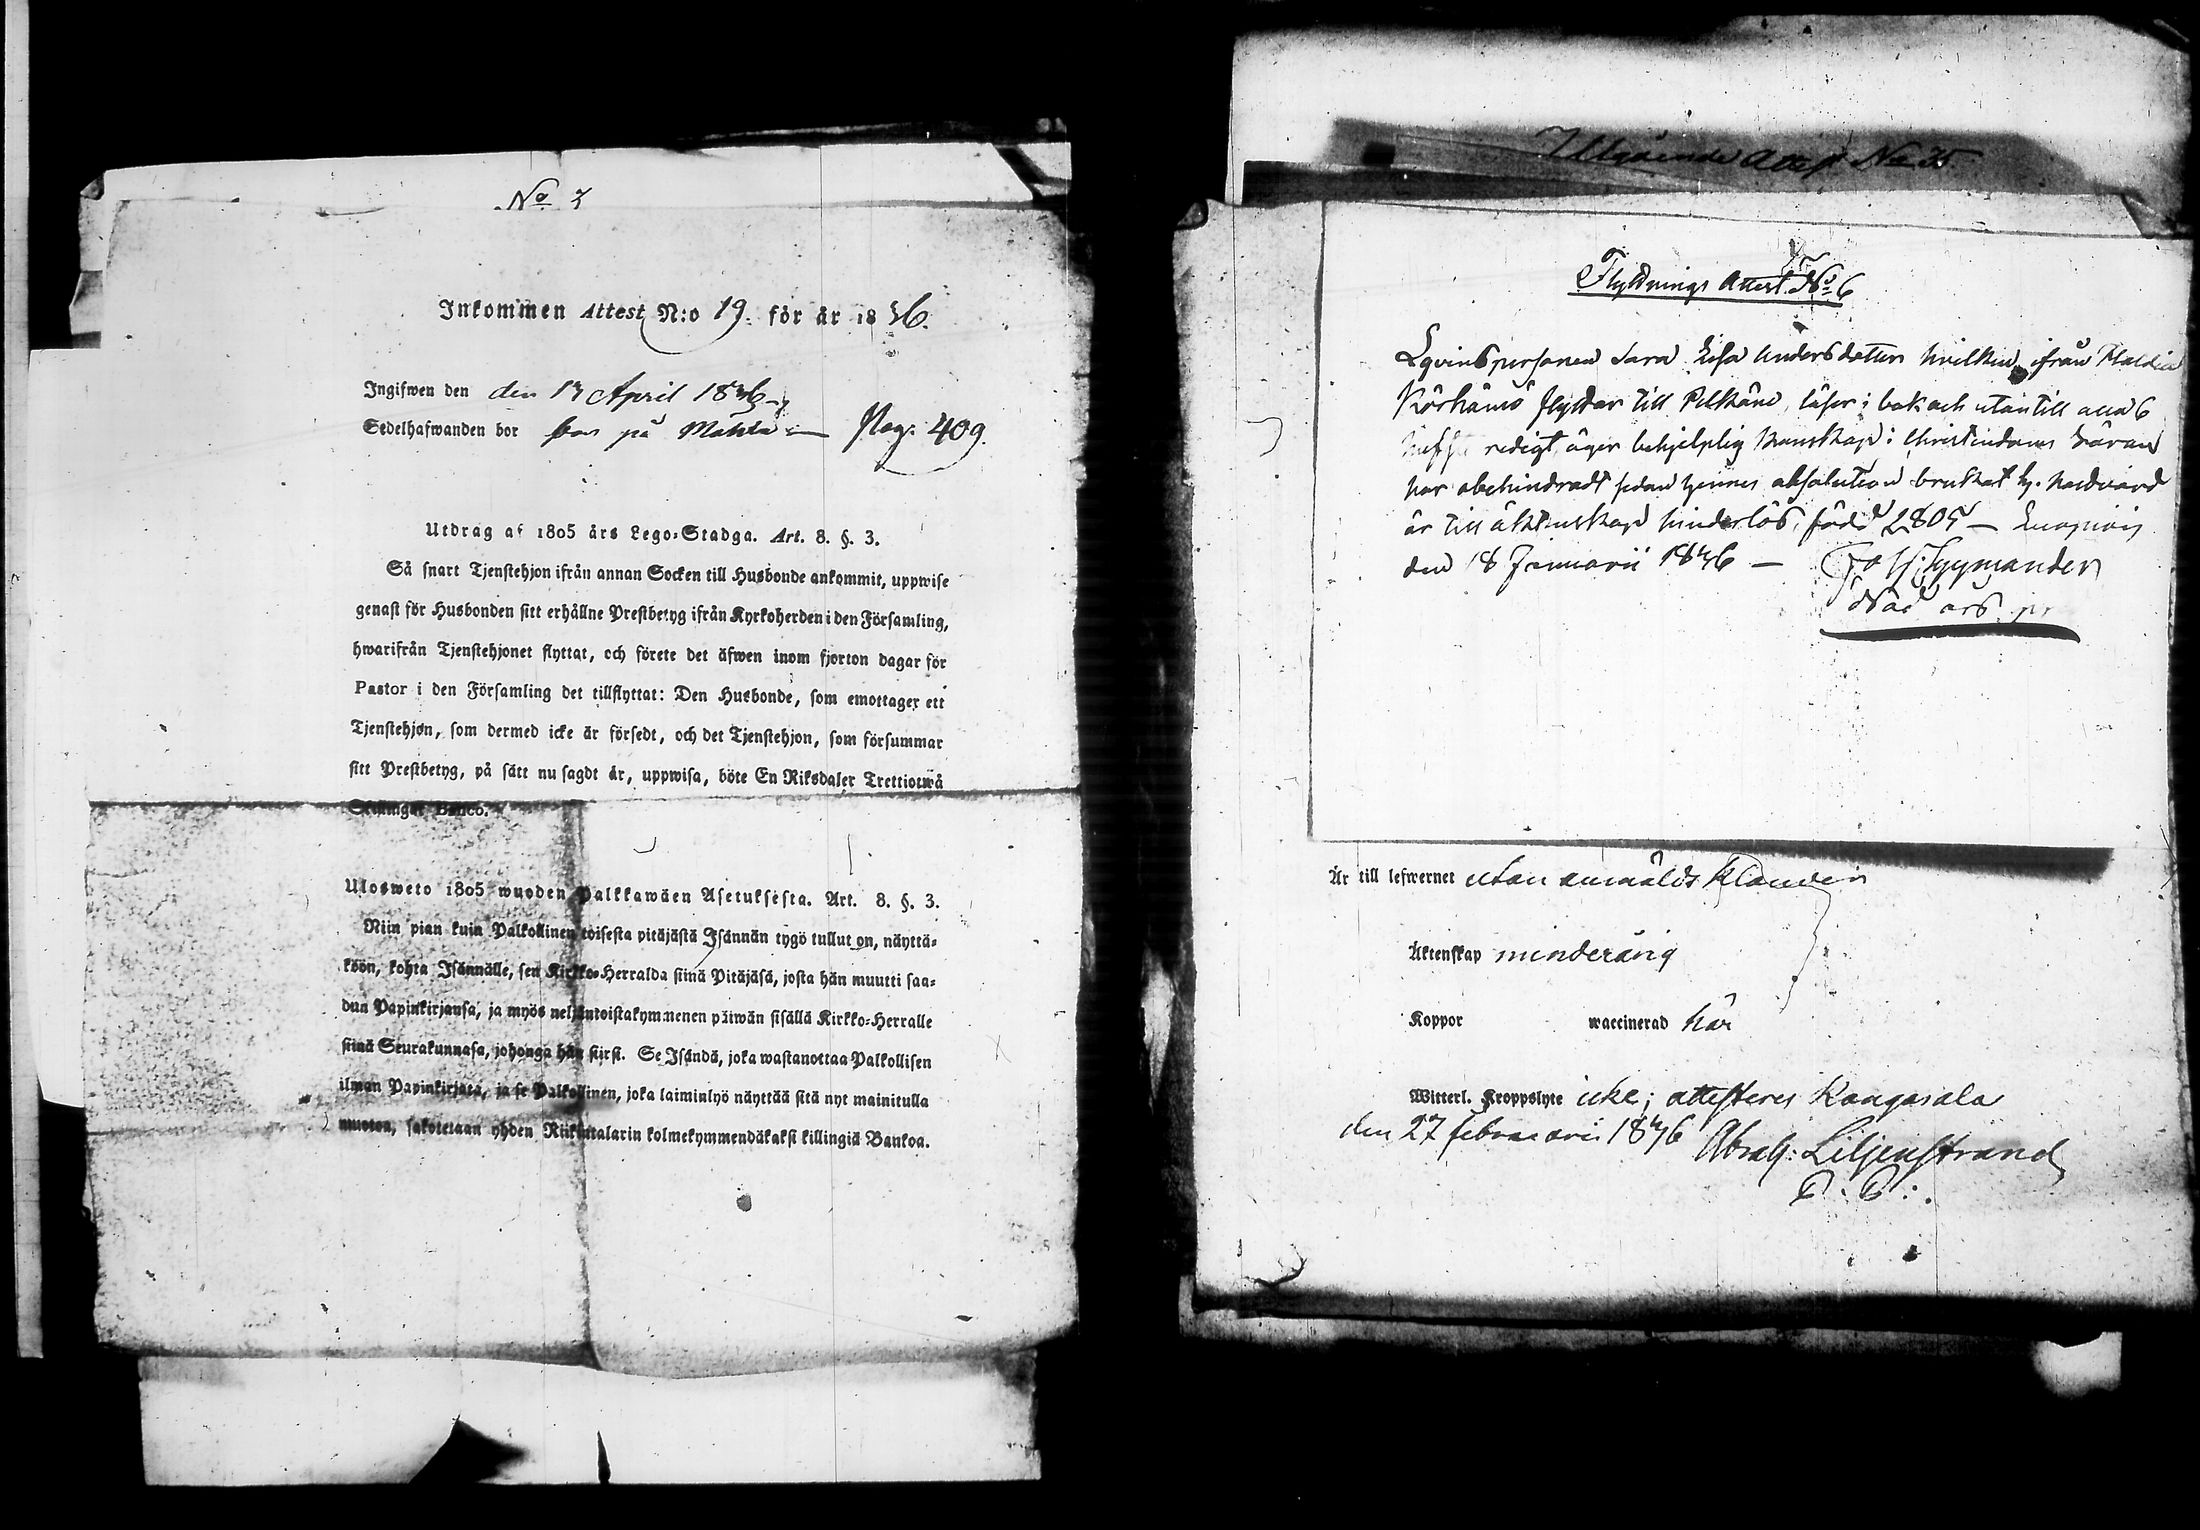 No 7
Inkommen Attest N:o 19. för år 1836.
Ingifwen den den 13 April 1836
Sedelhafwanden bor på Pag. 409.
Utdrag af 1805 års Lego-Stadga. Art. 8. §. 3.
Så snart Tjenstehjon ifrån annan Socken till Husbonde ankommit, uppwise
genast för Husbonden sitt erhållne Prestbetyg ifrån Kyrkoherden i den Församling,
hwarifrån Tjenstehjonet flyttat, och förete det äfwen inom fjorton dagar för
Pastor i den Församling det tillflyttat: Den Husbonde, som emottager ett
Tjenstehjon, som dermed icke är försedt, och det Tjenstehjon, som försummar
sitt Prestbetyg, på sätt nu sagdt är, uppwisa, böte En Riksdaler Trettiotwå
Skillingar Banco.
Ulosweto 1805 wuoden Palkkawäen Asetuksesta. Art. 8. §. 3.
Niin pian kuin Palkollinen toisesta pitäjästä Isännän tygö tullut on, näyttä-
köön, kohta Isännälle, sen Kirkko-Herralda siinä Pitäjäsä, josta hän muutti saa-
dun Papinkirjansa, ja myös neljäntoistakymmenen päiwän sisällä Kirkko-Herralle
siinä Seurakunnasa, johonga hän siirsi. Se Isändä, joka wastanottaa Palkollisen
ilman Papinkirjata, ja se Palkollinen, joka laiminlyö näyttää sitä nyt mainitulla
muoton, sakotetaan yhden Riikintalarin kolmekymmendäkaksi killingiä Bankoa.
Utgående Attest No 35
Flyttnings Attest No 6
Qvinspersonen Sara Lisa Andersdotter hvilken ifrån
flyttar till Pelkäne, läser i bok och utantill alla 6
redigt, äger behjelplig kunskap i Christendoms läran
har obehindradt sedan hennes absolution brukat h. nattvard
är till äktenskap hinderlös, född 1805
den 18 Januarii 1836
Är till lefwernet utan anmäldt klander
Äktenskap minderårig
Koppor waccinerad här
Witterl. Kroppslyte icke; attesteres Kangasala
den 27 februarii 1836 Abrah: Liljenstrand